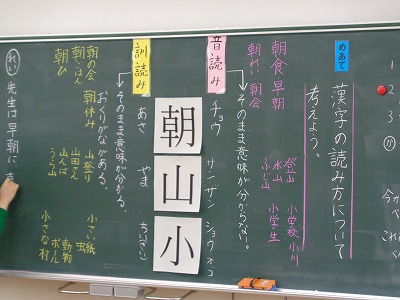 めあて
漢字の読み方について
考えよう。
音読み
そのまま意味が分からない。
朝食 早朝
朝れい 朝会
登山
火山
ふじ山
小学校 小川
小学生
チョウ
サン ザン
ショウ オ コ
朝
山
小
あさ
やま
ちいさい
訓読み
そのまま意味が分かる。
おくりがながある。
朝の会 朝休み
朝ごはん
朝ひ
山登り
山田さん
山んば
うら山
小さい紙
虫
動物
ボール
小さな村
れい 先生は早朝に
1
2
3